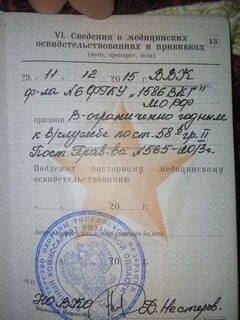 VI. Сведения о медицинских
освидетельствованиях и прививках
13
(дата, препарат, доза)
29. 11. 12 2015 г. ВВК
ф-ла №6 ФГКУ "1586 ВКГ"
МО РФ
признан В-ограниченно годным
к в/службе по ст. 58 б гр. II
Пост. Прав-ва №565-2013г.
Подлежит повторному медицинскому
освидетельствованию
20
20
НО ВЖО Нестеров